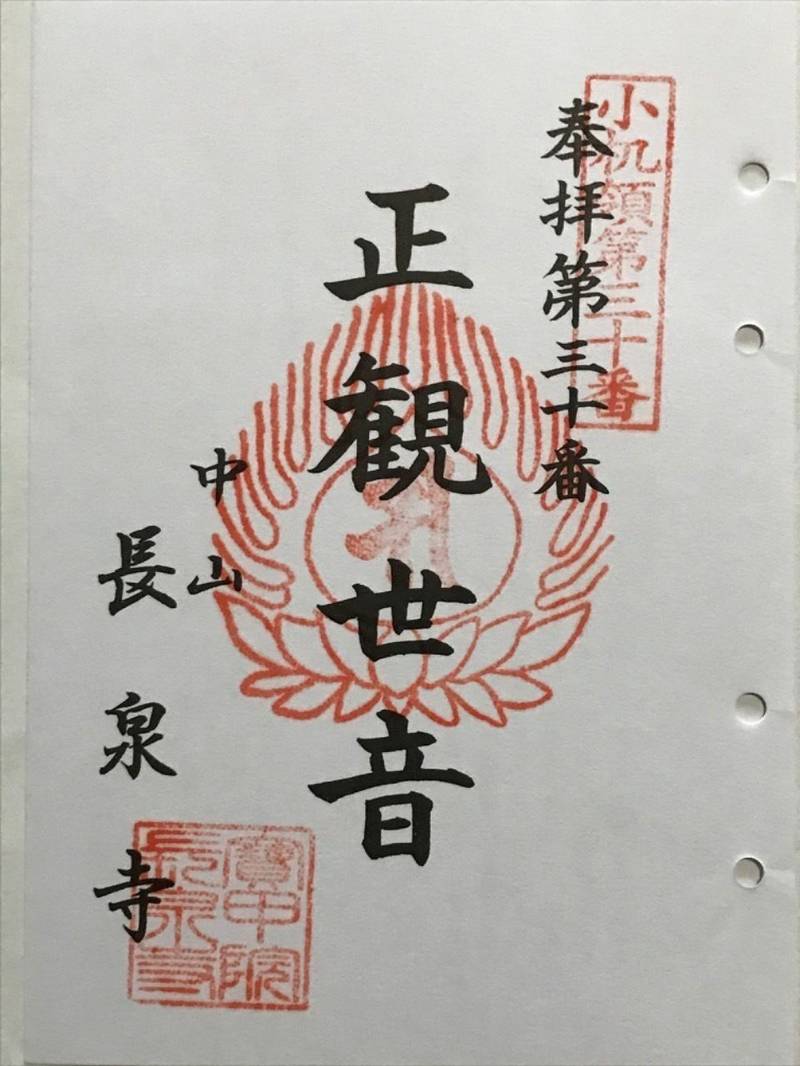 小机領第三十番
奉拝第三十番
正観世音
中山
長泉寺
寶中院
長泉寺